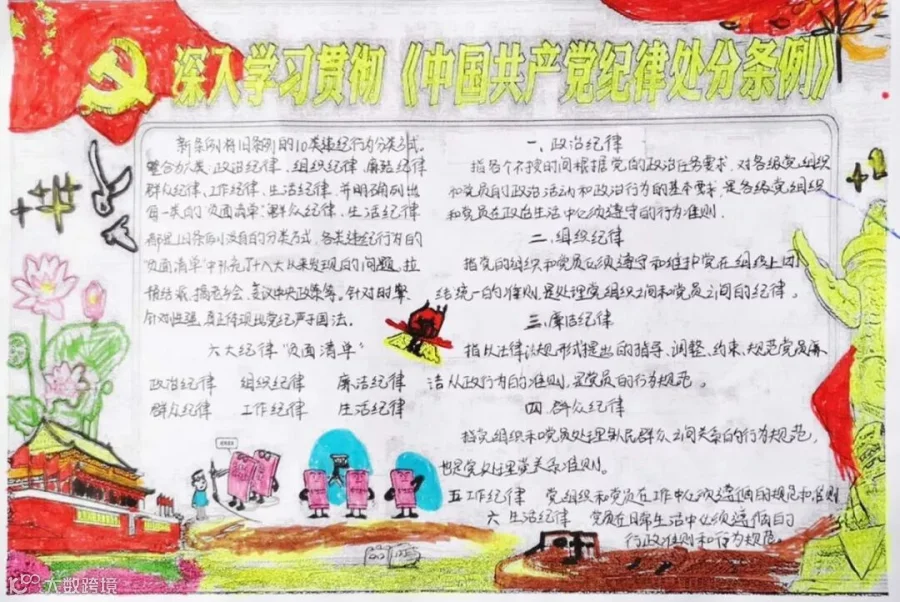 深入学习贯彻《中国共产党纪律处分条例》
新条例将旧条例的10类违纪行为分类方式,
整合为六类:政治纪律、组织纪律、廉洁纪律
群众纪律、工作纪律、生活纪律,并明确列出
每一类的"负面清单"。群众纪律、生活纪律
都是旧条例没有的分类方式,各类违纪行为的
"负面清单"中补充了十八大以来发现的问题,拉
帮结派、搞老乡会、妄议中央政策等。针对时弊,
针对性强,真正体现出党纪严于国法。
六大纪律"负面清单"
政治纪律 组织纪律 廉洁纪律
群众纪律 工作纪律 生活纪律
一、政治纪律
指各个不同时间根据党的政治任务要求,对各级党组织
和党员的政治活动和政治行为的基本要求,是各级党组织
和党员在政治生活中必须遵守的行为准则.
二、组织纪律
指党的组织和党员必须遵守和维护党在组织上团
结统一的准则,是处理党组织之间和党员之间的纪律。
三、廉洁纪律
指以法律法规形式提出的指导、调整、约束、规范党员廉
洁从政行为的准则,是党员的行为规范。
四、群众纪律
指党组织和党员处理和人民群众之间关系的行为规范,
也是党处理党关系准则。
五工作纪律 党组织和党员在工作中必须遵循的规范和准则
六 生活纪律 党员在日常生活中必须遵循的
行政准则和行为规范
大数跨境